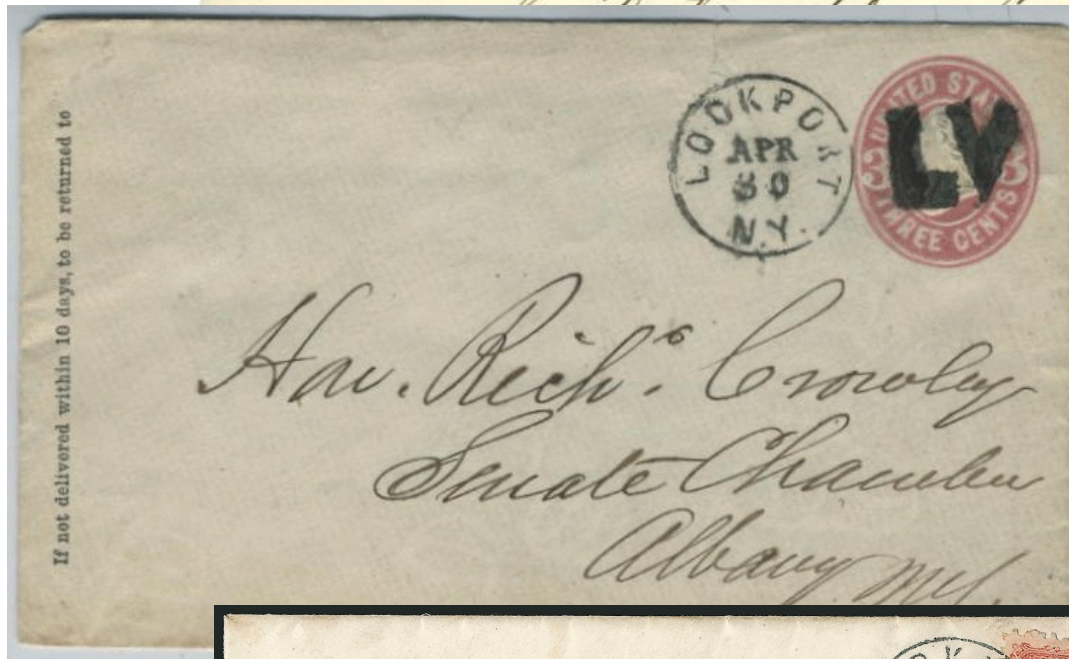 If not delivered within 10 days, to be returned to
LOCKPORT
APR
30
N.Y.
UNITED STA
3 3
THREE CENTS
LY
Hon. Rich.d Crowley
Senate Chamber
Albany N.Y.